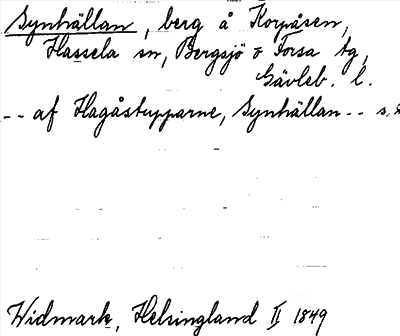 Synhällan, berg å Korpåsen,
Hassela sn, Bergsjö o Forsa tg,
Gävleb. l.
-- af Hagåstupparne, Synhällan -- s.
Widmark, Helsingland II 1849